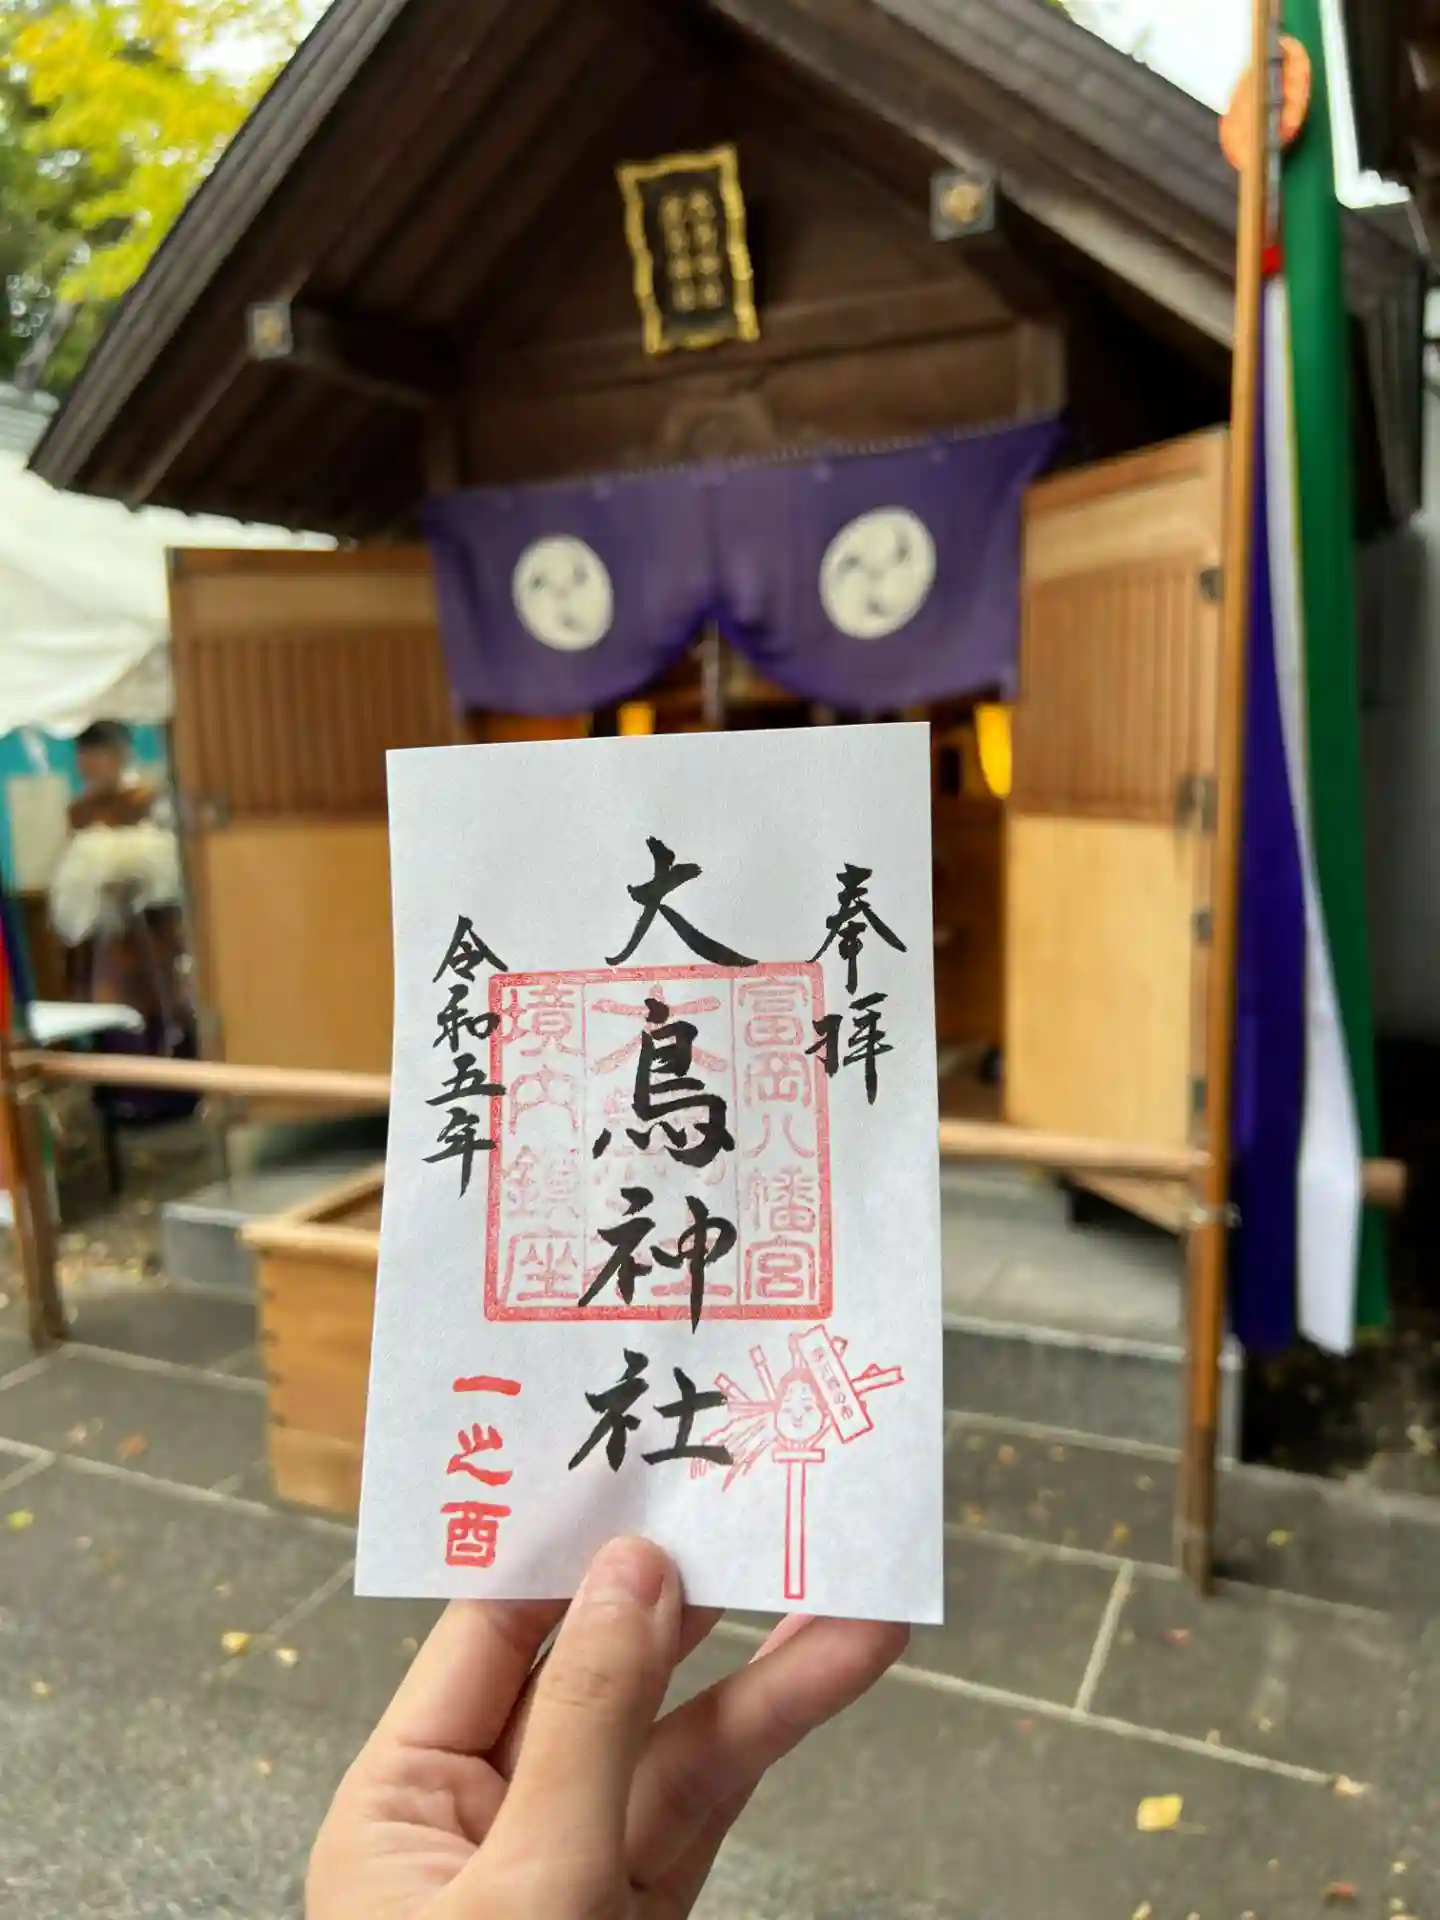 奉拝
大鳥神社
富岡八幡宮
大鳥神社
境内鎮座
令和五年
一之酉